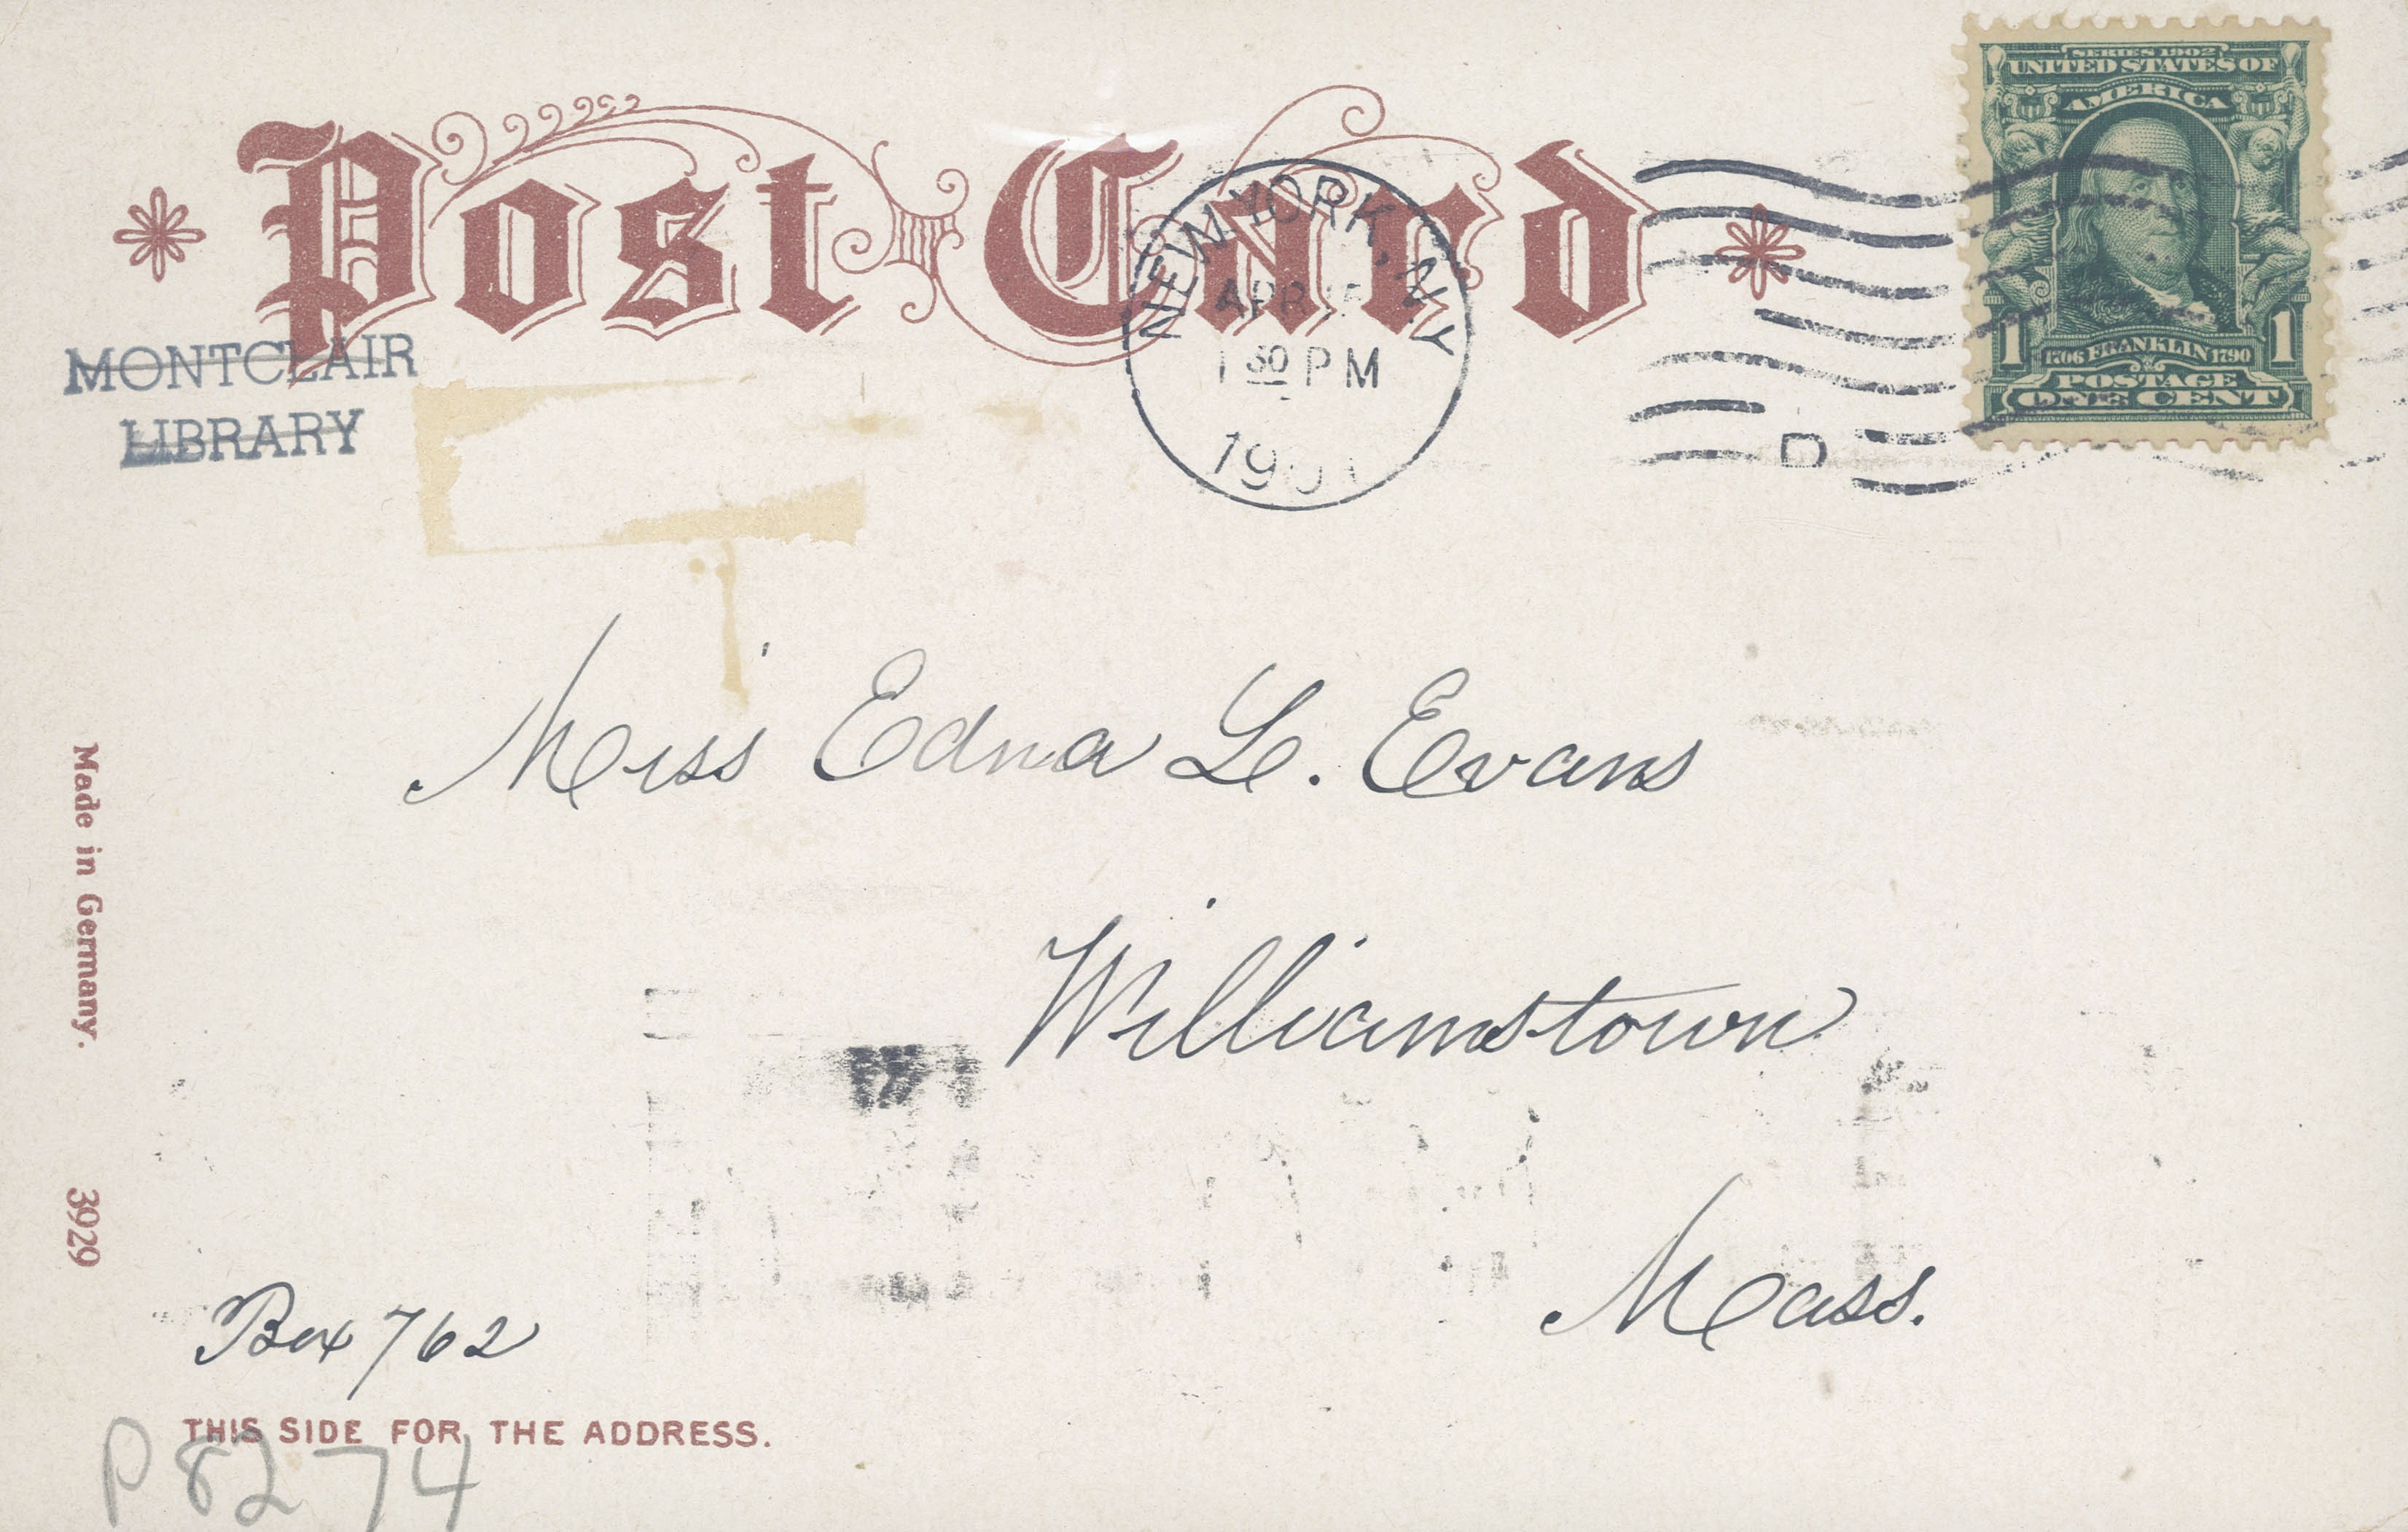 Post Card
MONTCLAIR
LIBRARY
NEW YORK, N.Y.
APR
1 30 PM
D
SERIES 1902
UNITED STATES OF
AMERICA
1 1706 FRANKLIN 1790 1
POSTAGE
ONE CENT
Miss Edna L. Evans
Williamstown
Mass.
Box 762
THIS SIDE FOR THE ADDRESS.
P8274
Made in Germany.
3929